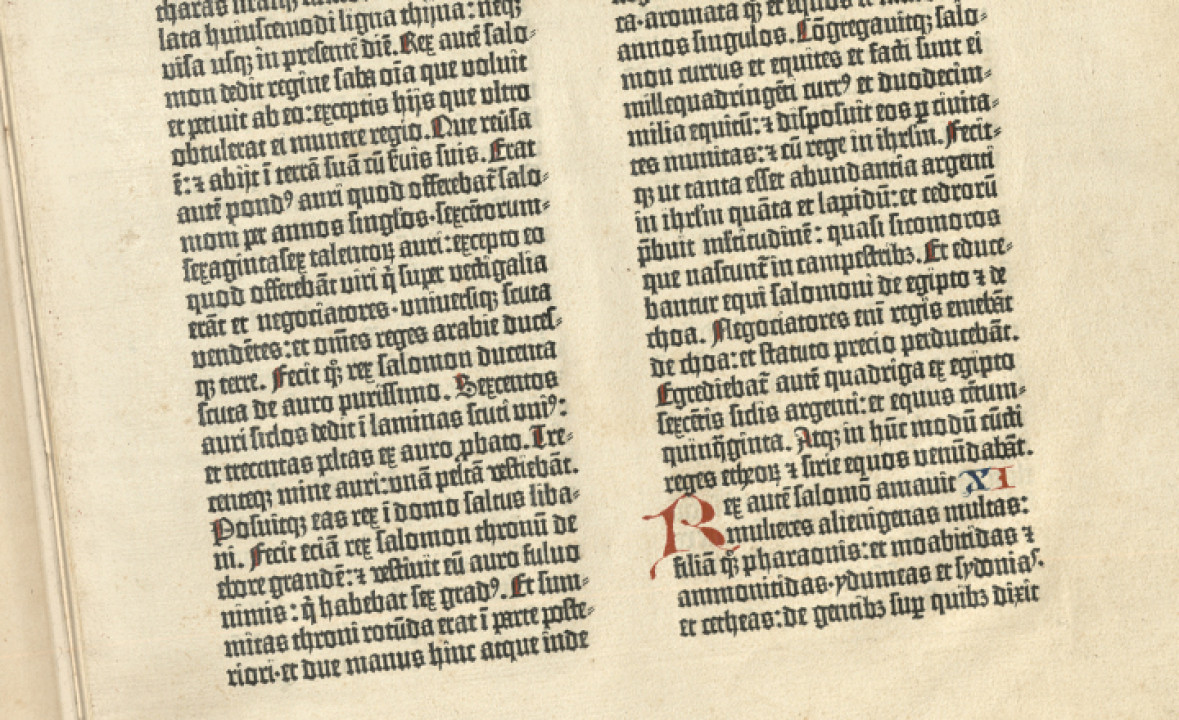 lata huiuscemodi ligna thyina: neqꝫ
visa usqꝫ in presentē diē. Rex autē salo-
mon dedit regine saba oīa que voluit
et petiuit ab eo: exceptis hijs que vltro
obtulerat ei munere regio. Que reūsa
ē: ⁊ abijt ī terrā suā cū ẜuis suis. Erat
autē pondꝰ auri quod offerebat̄ salo-
moni per annos singłos · sexcētorum-
sexagintasex talentoꝝ auri: excepto eo
quod offerebāt viri q̄ super vectigalia
erāt et negociatores · universiqꝫ scuta
vendētes: et om̄es reges arabie duces-
qꝫ terre. Fecit qꝫ rex salomon ducenta
scuta de auro purissimo. Sexcentos
auri siclos dedit ī laminas scuti uniꝰ:
et trecentas pltas ex auro ꝓbato. Tre-
centeqꝫ mine auri: unā peltā vestiebāt.
Posuitqꝫ eas rex ī domo saltus liba-
ni. Fecit eciā rex salomon thronū de
ebore grandē: ⁊ vestiuit eū auro fuluo
nimis: q̄ habebat sex gradꝰ. Et sum-
mitas throni rotūda erat ī parte poste-
riori · et due manus hinc atque inde
ca · aromata qꝫ et equos et
annos singulos. Cōgregauitqꝫ salo-
mon currus et equites et facti sunt ei
millequadringēti currꝰ et duodecim-
milia equitū: ⁊ disposuit eos ꝑ ciuita-
tes munitas: ⁊ cū rege in ihrlm̄. Fecit-
qꝫ ut tanta esset abundantia argenti
in ihrlm̄ quāta et lapidū: et cedrorū
p̄buit mltitudinē: quasi sicomoros
que nascunt̄ in campestribꝫ. Et educe-
bantur equi salomoni de egipto ⁊ de
choa. Negociatores eni regis emebāt
de choa: et statuto precio perducebāt.
Egrediebat̄ autē quadriga ex egipto
sexcētis siclis argenti: et equus cētum-
quinq̄ginta. Atqꝫ in hūc modū cūcti
reges etheoꝝ ⁊ sirie equos venūdabāt.
Rex autē salomō amauit XI
mulieres alienigenas multas:
filiā qꝫ pharaonis: et moabitidas ⁊
ammonitidas · ydumeas et sydoniaꝰ.
et cetheas: de gentibꝫ suꝑ quibꝫ dixit